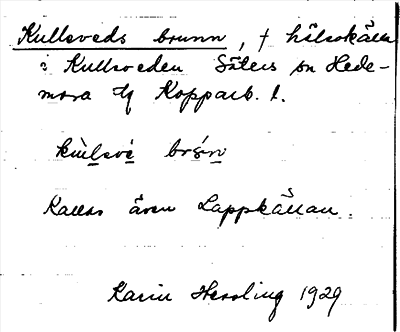 Kullsveds brunn, † hälsokälla
i Kullsveden Säters sn Hede-
mora tg Kopparb. l.
Kallas även Lappkällan.
Karin Hessling 1929